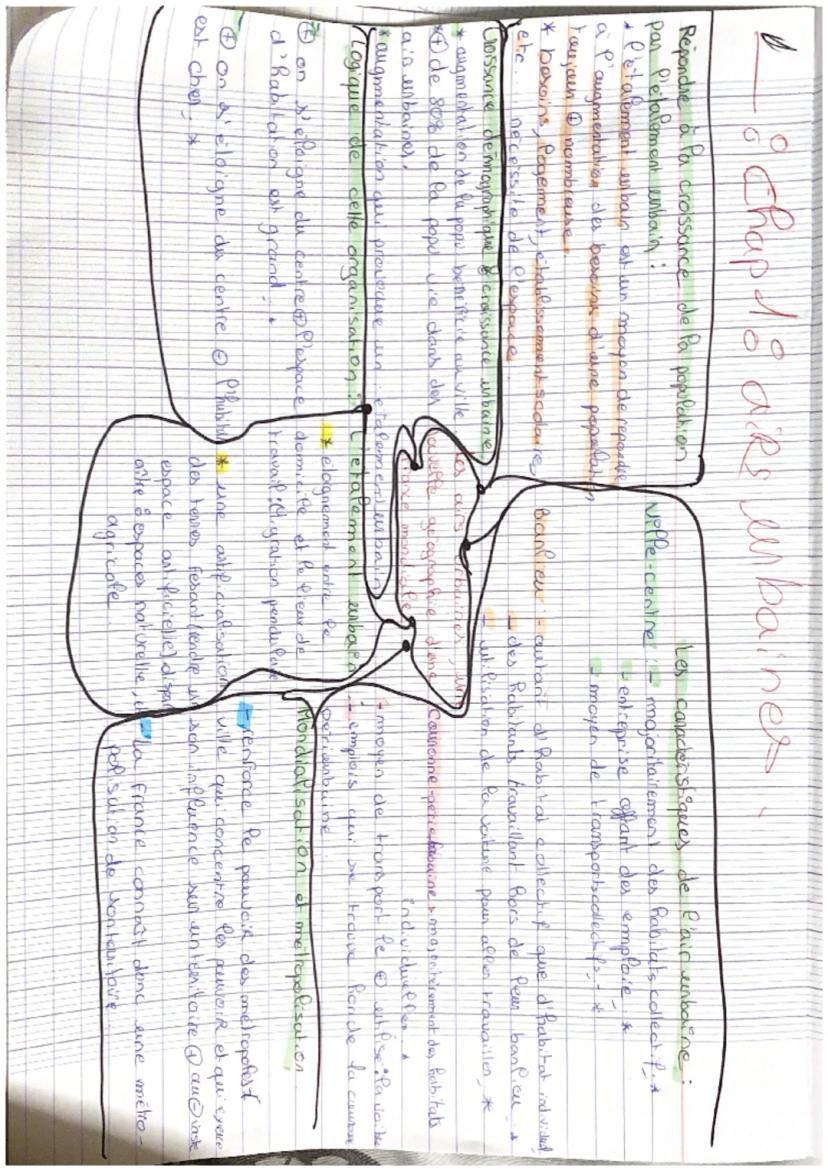 Chap 1 : airs urbaines.
Répondre à la croissance de la population
par l'étalement urbain :
* l'étalement urbain est un moyen de repondre
à l'augmentation des besoins d'une population
toujours ⊕ nombreuse
* besoins, logement, établissement scolaire,
etc... nécessite de l'espace.
Croissance démographique & croissance urbaine
* augmentation de la popu bénéficie au ville
* ⊕ de 80% de la popu vie dans des
airs urbaines.
* augmentation qui provoque un étalement urbain
Logique de cette organisation :
⊕ on s'éloigne du centre ⊕ l'espace
d'habitation est grand. *
⊕ on s'éloigne du centre ⊖ l'habitat
est cher. *
Les airs urbaines, une
nouvelle géographie d'une
france mondialisée
Les caractéristiques de l'air urbaine :
Ville-centre : - majoritairement des habitats collectif *
- entreprise offrant des emploie *
- moyen de transports collectifs *
Banlieu : - autant d'habitat collectif que d'habitat individuel
- des habitants travaillant hors de leur banlieu *
- utilisation de la voiture pour aller travailler *
Couronne-periurbaine : majoritairement des habitats
individuelles *
- moyen de transport le ⊕ utilise : la voiture
- emplois qui se trouve hors de la couronne
periurbaine
L'étalement urbain
* élognement entre le
domicile et le lieux de
travail : Migration pendulaire
* une artificialisation
des terres fesant (rendre un
espace artificielle) disparaitre
agricole.
Mondialisation et métropolisation
- renforce le pouvoir des métropoles (
ville qui concentre les pouvoir et qui exerce
son influence sur un territoire ⊕ au ⊖ vaste
- la france connaît donc une métro-
polisation de son territoire.